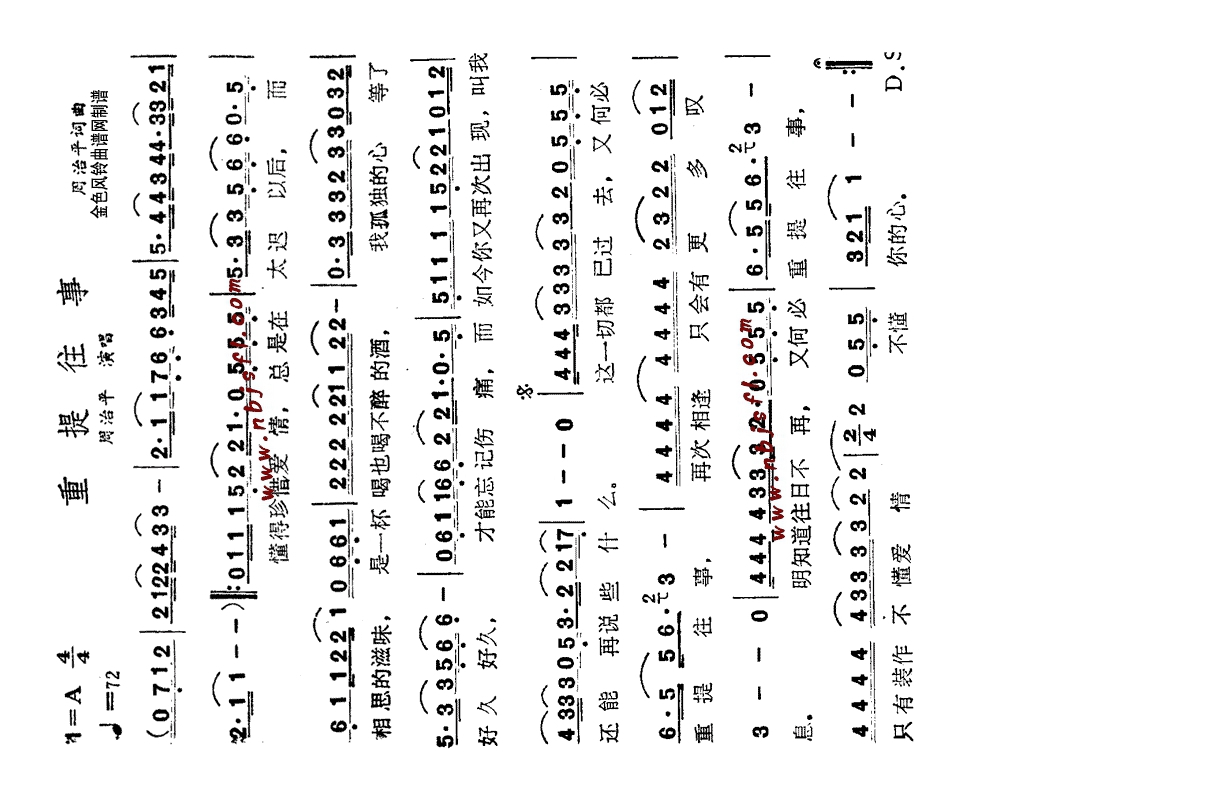 重 提 往 事
周治平 演唱
周治平词曲
金色风铃曲谱网制谱
1=A 4/4
♩=72
(0 7 1 2 | 2 1 2 2 2 4 3 3 - | 2·1 1 1 7 6 6 3 4 5 | 5·4 4 4 3 4 4 4·3 3 2 1 |
2·1 1 - - ) ‖: 0 1 1 1 1 5 2 2 1·0 5 5 5 5 | 5·3 3 3 5 6 6 6 0·5 |
懂得珍惜爱 情，总 是在 太 迟 以后， 而
www.nbjsfl.com
6 1 1 2 2 1 0 6 6 1 | 2 2 2 2 2 1 1 2 2 - | 0·3 3 3 2 3 3 0 3 2 |
相思的滋味， 是一杯 喝也喝不醉的酒， 我孤独的心 等了
5·3 3 3 5 6 6 6 - | 0 6 1 1 6 6 2 2 1·0·5 | 5 1 1 1 1 5 2 2 1 0 1 2 |
好 久 好久， 才能忘记伤 痛，而 如今你又再次出 现，叫我
4 3 3 3 0 5 3·2 2 2 1 7 | 1 - - 0 | 4 4 4 3 3 3 3 3 2 0 5 5 5 |
还 能 再说 些 什 么。 这一切都 已过 去，又 何必
6·5 5 6·2 3 - | 4 4 4 4 4 4 4 4 2 3 2 2 0 1 2 |
重 提 往 事， 再次相逢 只会有 更 多 叹
3 - - 0 | 4 4 4 4 3 3 3 2·0 5 5 5 | 6·5 5 5 6·2 3 - |
息。 明知道往日不 再， 又何必 重 提 往 事，
www.nbjsfl.com
4 4 4 4 4 3 3 3 3 2 2 | 2/4 2 0 5 5 | 3 2 1 1 - - :‖
只有装作 不 懂爱 情 不懂 你的心。
D.S